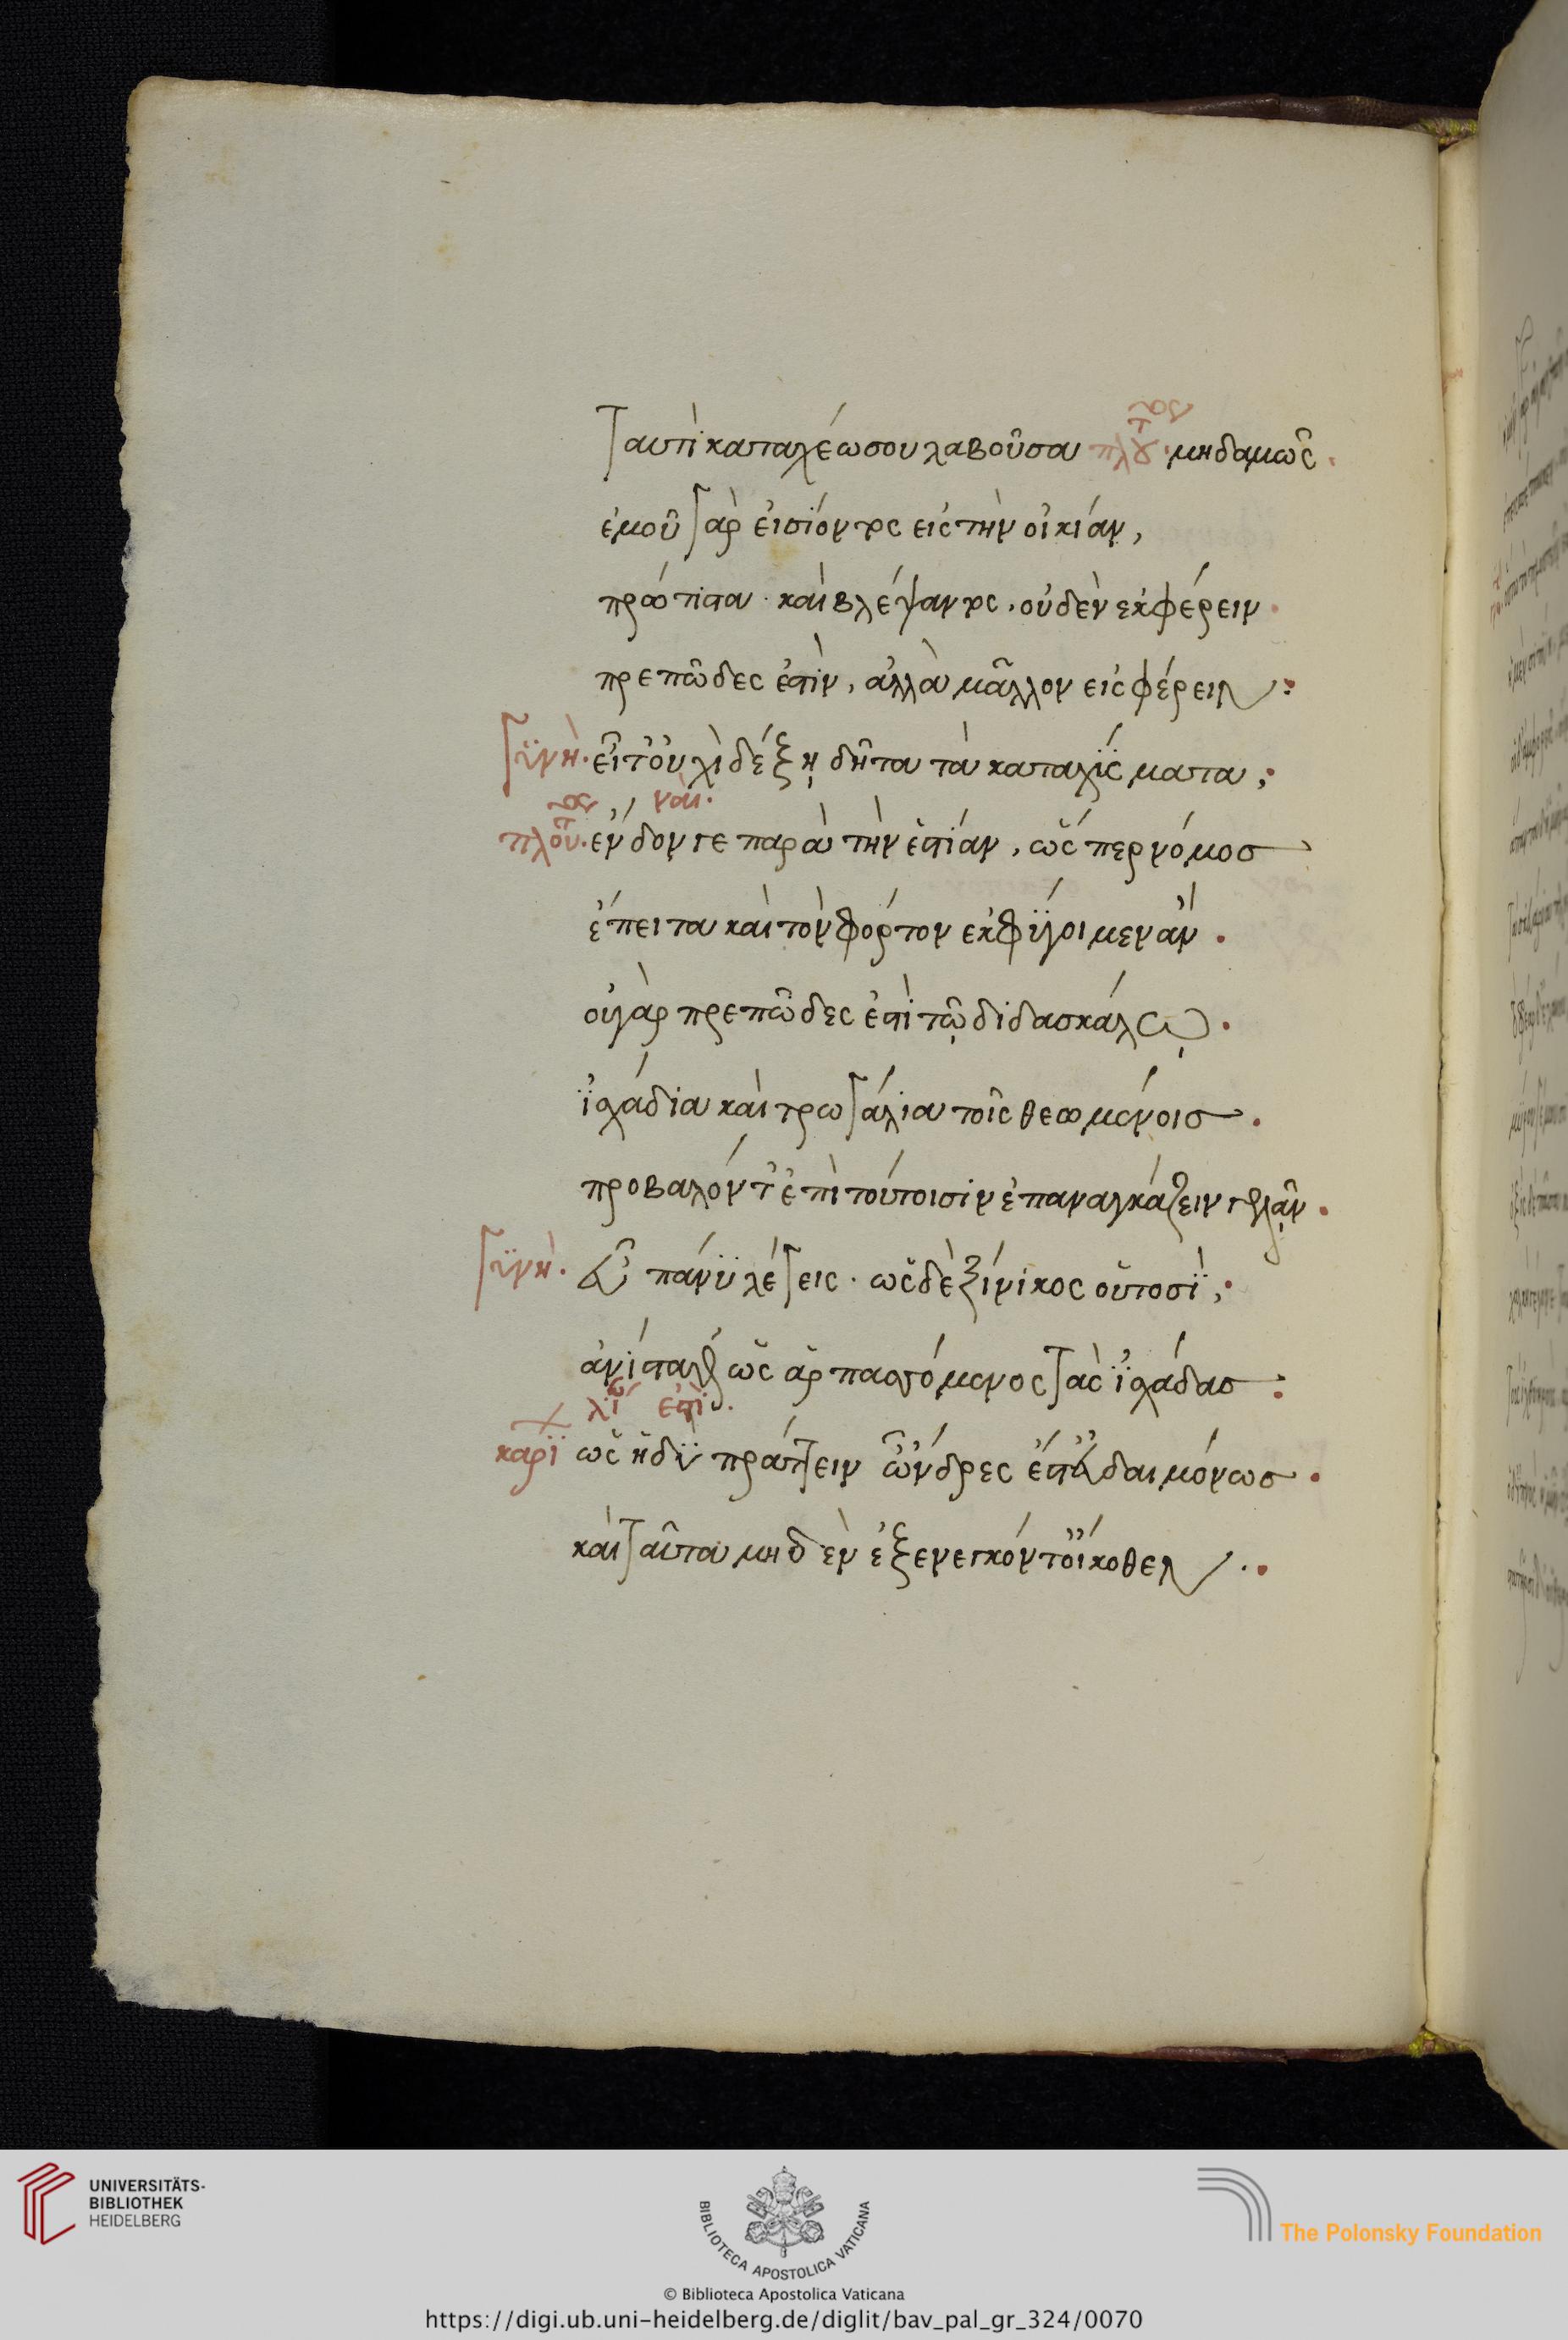 ταυτὶ καταχέω σου λαβοῦσα πλȣτ· μηδαμῶς.
ἐμοῦ γὰρ εἰσϊόντος εἰς τὴν οἰκίαν,
πρώτιστα· καὶ βλέψαντος, οὐδὲν ἐκφέρειν.
πρεπῶδες ἐστὶν, ἀλλὰ μᾶλλον εἰσφέρειν:
γϋνὴ· εἶτ' οὐχὶ δέξῃ δῆτα τὰ καταχΰσματα;
ναὶ·
πλοῦτ· ἔνδον γε παρὰ τὴν ἑστίαν, ὥσπερ νόμος
ἔπειτα καὶ τὸν φόρτον ἐκφϋγοιμεν ἄν.
οὐ γὰρ πρεπῶδες ἐστὶ τῷ διδασκάλῳ.
ϊσχάδια καὶ τρωγάλια τοῖς θεωμένοισ.
προβαλόντ' ἐπὶ τούτοισιν ἐπαναγκάζειν γελᾷν.
γϋνὴ· εὖ πάνϋ λέγεις· ὡς δὲ ξίνικος οὑτοσὶ;
ἀνίσταθ' ὡς ἁρπασόμενος τὰς ϊσχάδασ:
ἐστὶ.
καρϊ ὡς ἡδϋ πράττειν ὦνδρες ἔστ' εὐδαιμόνωσ.
καὶ ταῦτα μηδὲν ἐξενεγκόντ' οἴκοθεν..
UNIVERSITÄTS-
BIBLIOTHEK
HEIDELBERG
BIBLIOTECA APOSTOLICA VATICANA
The Polonsky Foundation
© Biblioteca Apostolica Vaticana
https://digi.ub.uni-heidelberg.de/diglit/bav_pal_gr_324/0070